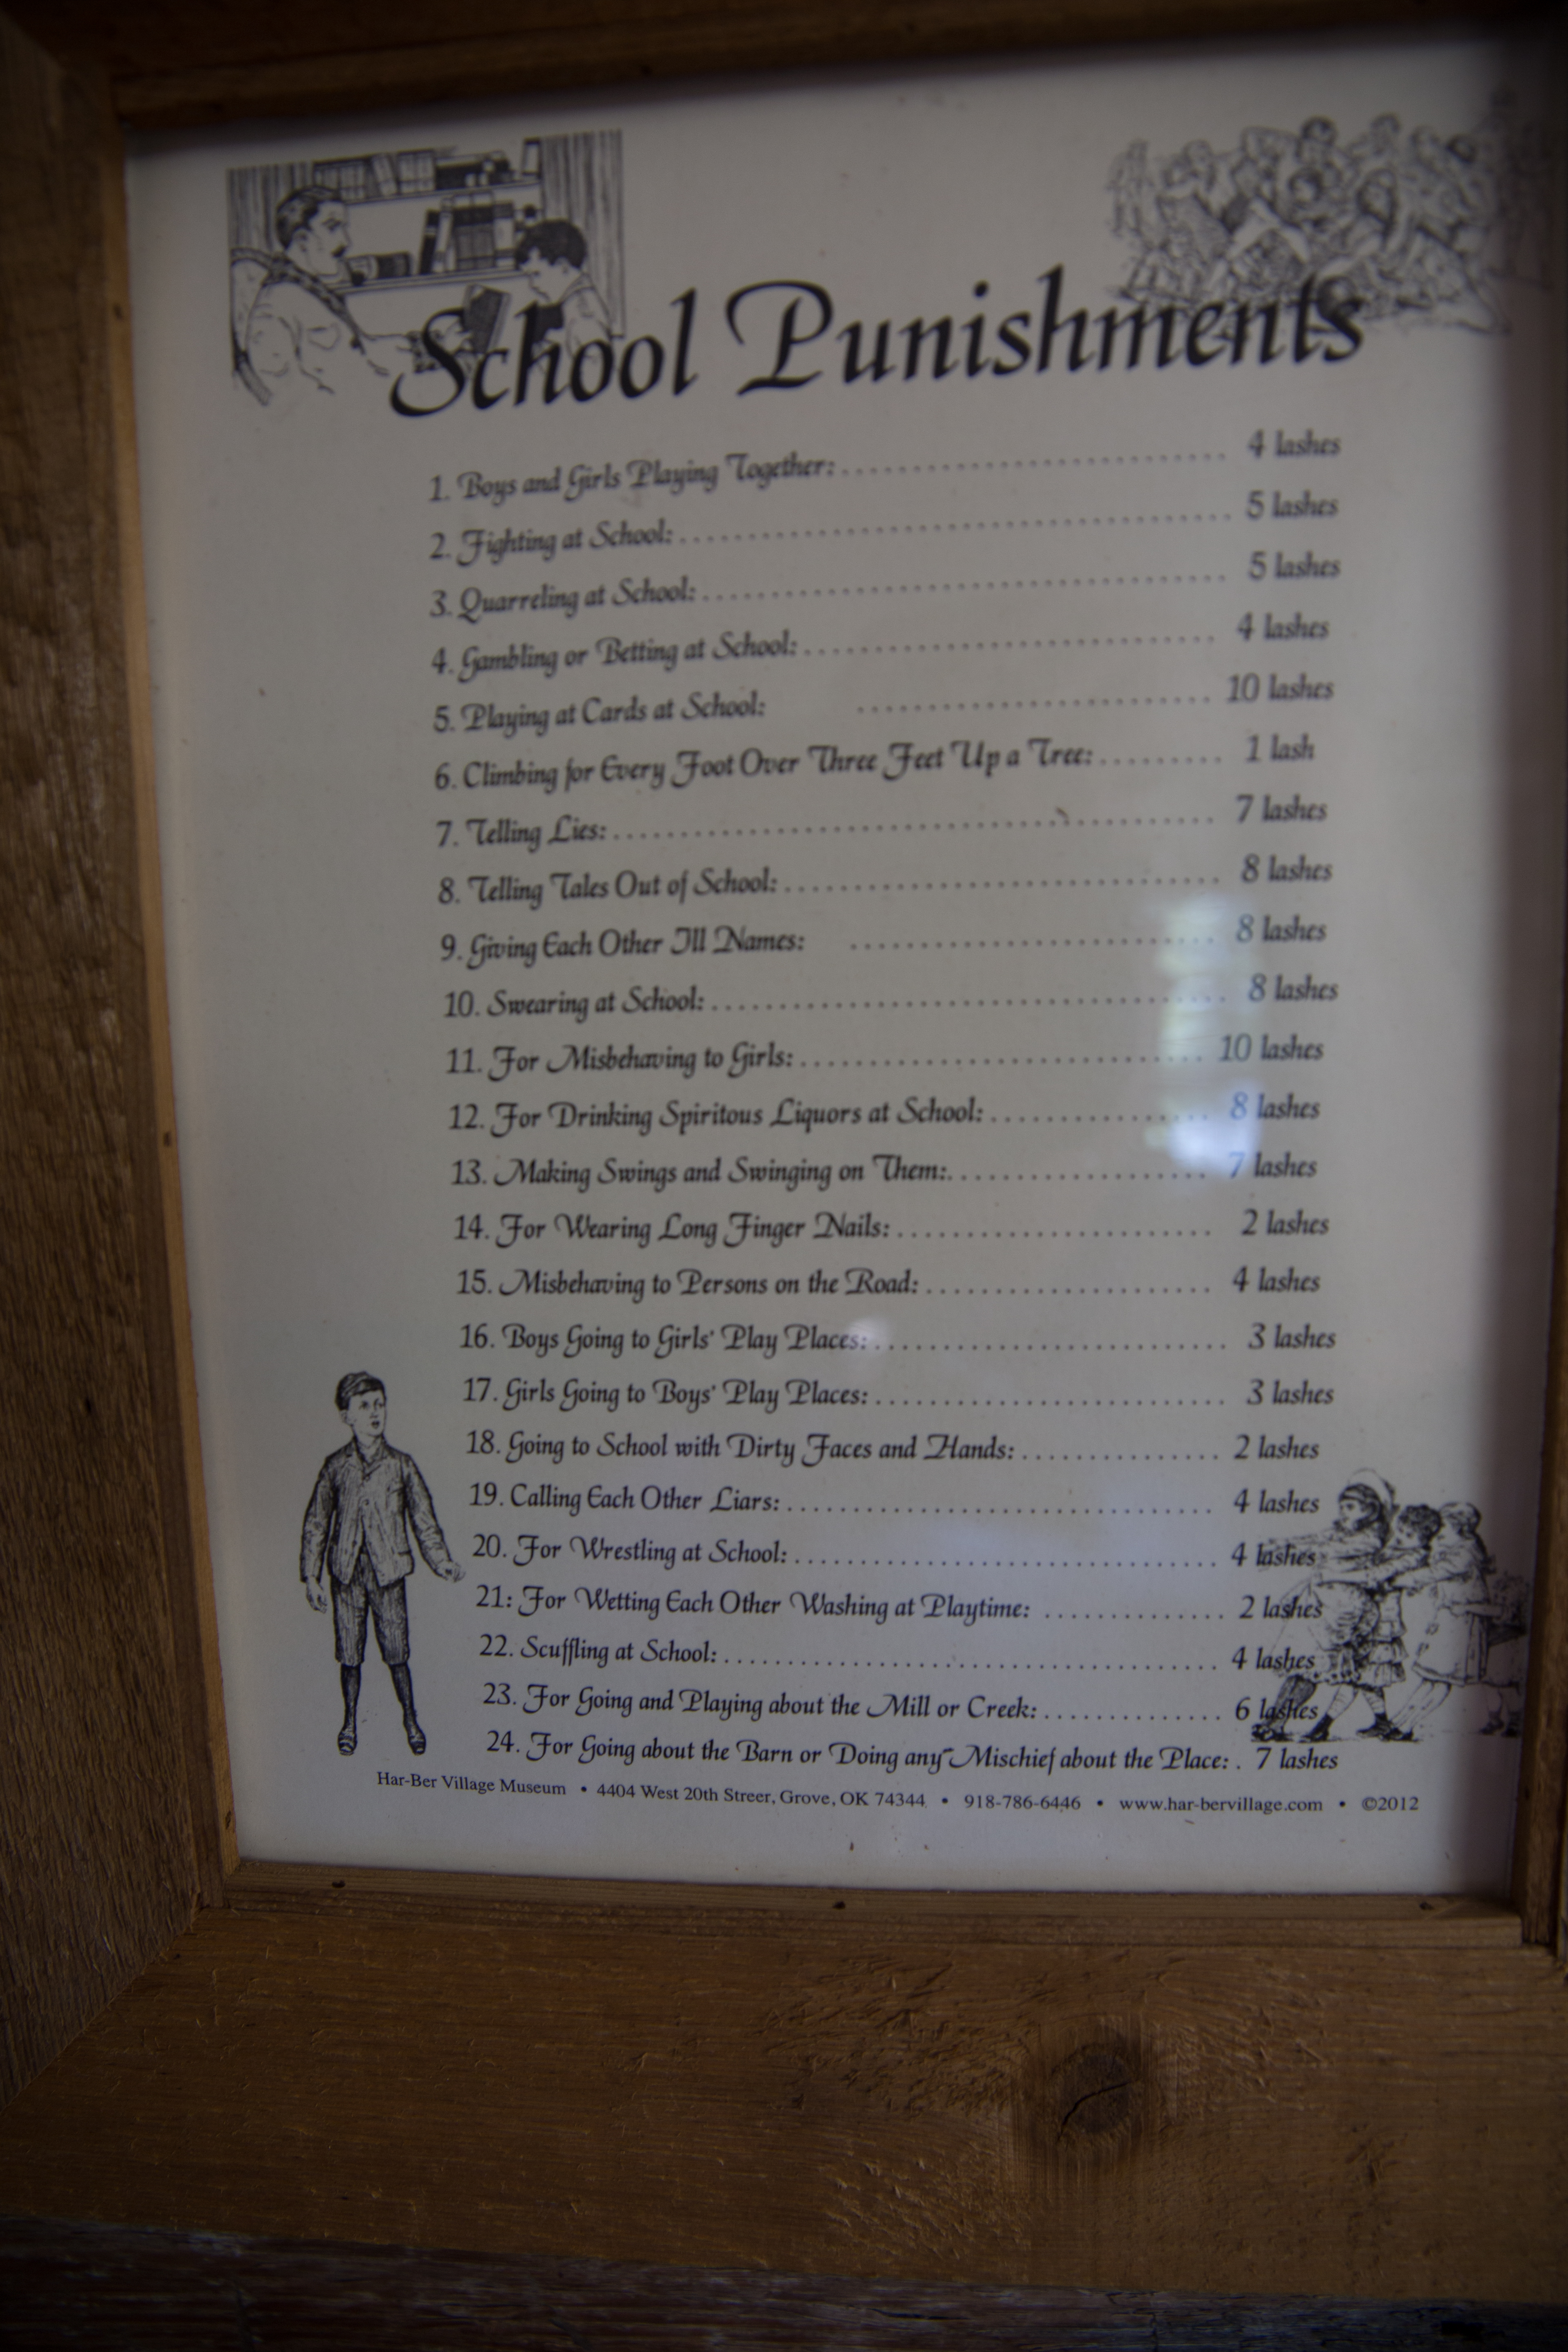 School Punishments
1. Boys and Girls Playing Together: ........................... 4 lashes
2. Fighting at School: ....................................... 5 lashes
3. Quarreling at School: ..................................... 5 lashes
4. Gambling or Betting at School: ............................. 4 lashes
5. Playing at Cards at School: .......................... 10 lashes
6. Climbing for Every Foot Over Three Feet Up a Tree: ......... 1 lash
7. Telling Lies: ........................................... 7 lashes
8. Telling Tales Out of School: ............................... 8 lashes
9. Giving Each Other Ill Names: ........................... 8 lashes
10. Swearing at School: ..................................... 8 lashes
11. For Misbehaving to Girls: ............................. 10 lashes
12. For Drinking Spiritous Liquors at School: ................ 8 lashes
13. Making Swings and Swinging on Them: ................... 7 lashes
14. For Wearing Long Finger Nails: ....................... 2 lashes
15. Misbehaving to Persons on the Road: ..................... 4 lashes
16. Boys Going to Girls' Play Places: ......................... 3 lashes
17. Girls Going to Boys' Play Places: ......................... 3 lashes
18. Going to School with Dirty Faces and Hands: ............... 2 lashes
19. Calling Each Other Liars: ............................... 4 lashes
20. For Wrestling at School: ............................... 4 lashes
21: For Wetting Each Other Washing at Playtime: ............. 2 lashes
22. Scuffling at School: ..................................... 4 lashes
23. For Going and Playing about the Mill or Creek: ............. 6 lashes
24. For Going about the Barn or Doing any Mischief about the Place: . 7 lashes
Har-Ber Village Museum • 4404 West 20th Streer, Grove, OK 74344 • 918-786-6446 • www.har-bervillage.com • ©2012